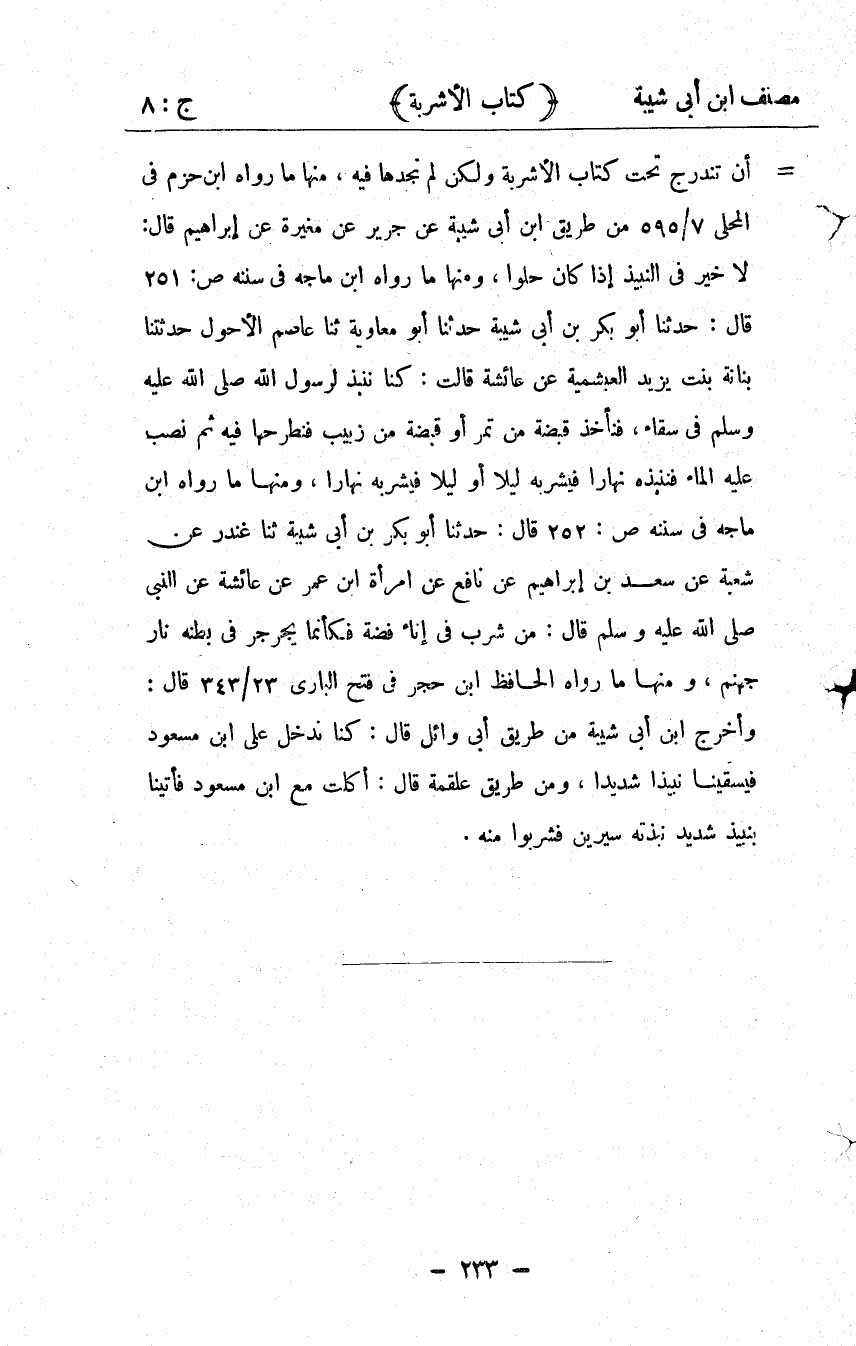 مصنف ابن أبى شيبة ﴿ كتاب الأشربة ﴾ ج : ٨
= أن تندرج تحت كتاب الأشربة ولكن لم نجدها فيه ، منها ما رواه ابن حزم فى
المحلى ٥٩٥/٧ من طريق ابن أبى شيبة عن جرير عن مغيرة عن إبراهيم قال:
لا خير فى النبيذ إذا كان حلوا ، ومنها ما رواه ابن ماجه فى سننه ص: ٢٥١
قال : حدثنا أبو بكر بن أبى شيبة حدثنا أبو معاوية ثنا عاصم الأحول حدثتنا
بنانة بنت يزيد العبشمية عن عائشة قالت : كنا ننبذ لرسول الله صلى الله عليه
وسلم فى سقاء ، فنأخذ قبضة من تمر أو قبضة من زبيب فنطرحها فيه ثم نصب
عليه الماء فننبذه نهارا فيشربه ليلا أو ليلا فيشربه نهارا ، ومنهـا ما رواه ابن
ماجه فى سننه ص : ٢٥٢ قال : حدثنا أبو بكر بن أبى شيبة ثنا غندر عن
شعبة عن سعـد بن إبراهيم عن نافع عن امرأة ابن عمر عن عائشة عن النبى
صلى الله عليه و سلم قال : من شرب فى إناء فضة فكأنما يجرجر فى بطنه نار
جهنم ، و منهـا ما رواه الحـافظ ابن حجر فى فتح البارى ٣٤٣/٢٣ قال :
وأخرج ابن أبى شيبة من طريق أبى وائل قال : كنا ندخل على ابن مسعود
فيسقينـا نبيذا شديدا ، ومن طريق علقمة قال : أكلت مع ابن مسعود فأتينا
بنبيذ شديد نبذته سيرين فشربوا منه .
- ٢٣٣ -